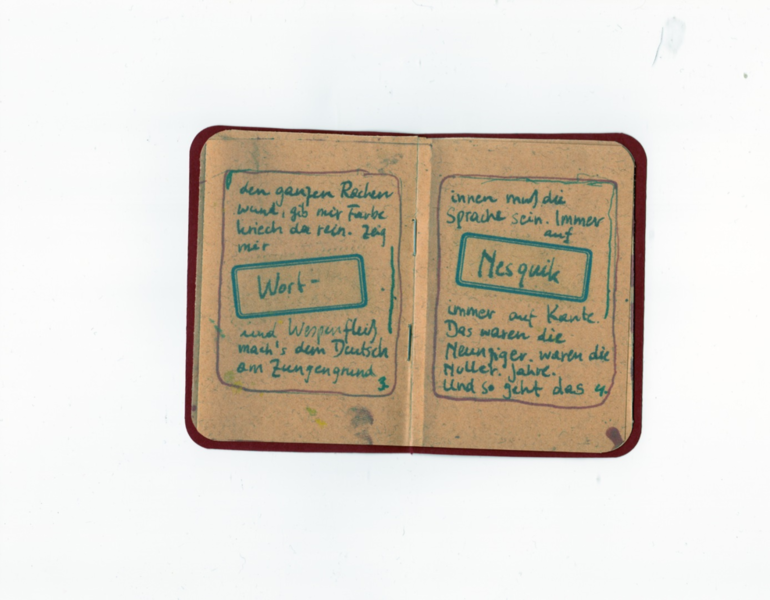 den ganzen Rachen
wund, gib mir Farbe
kriech da rein. Zeig
mir
Wort-
und Wespenfleiß
mach's dem Deutsch
am Zungengrund
3.
innen muß die
Sprache sein. Immer
auf
Nesquik
immer auf Kante.
Das waren die
Neunziger. waren die
Nuller. Jahre.
Und so geht das 4.